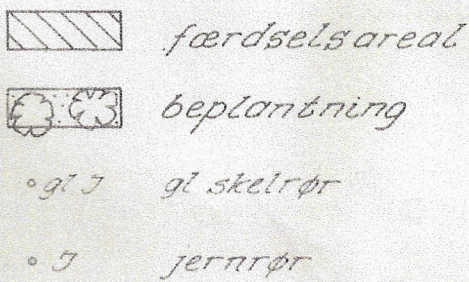 færdselsareal
beplantning
gl J gl skelrør
J jernrør